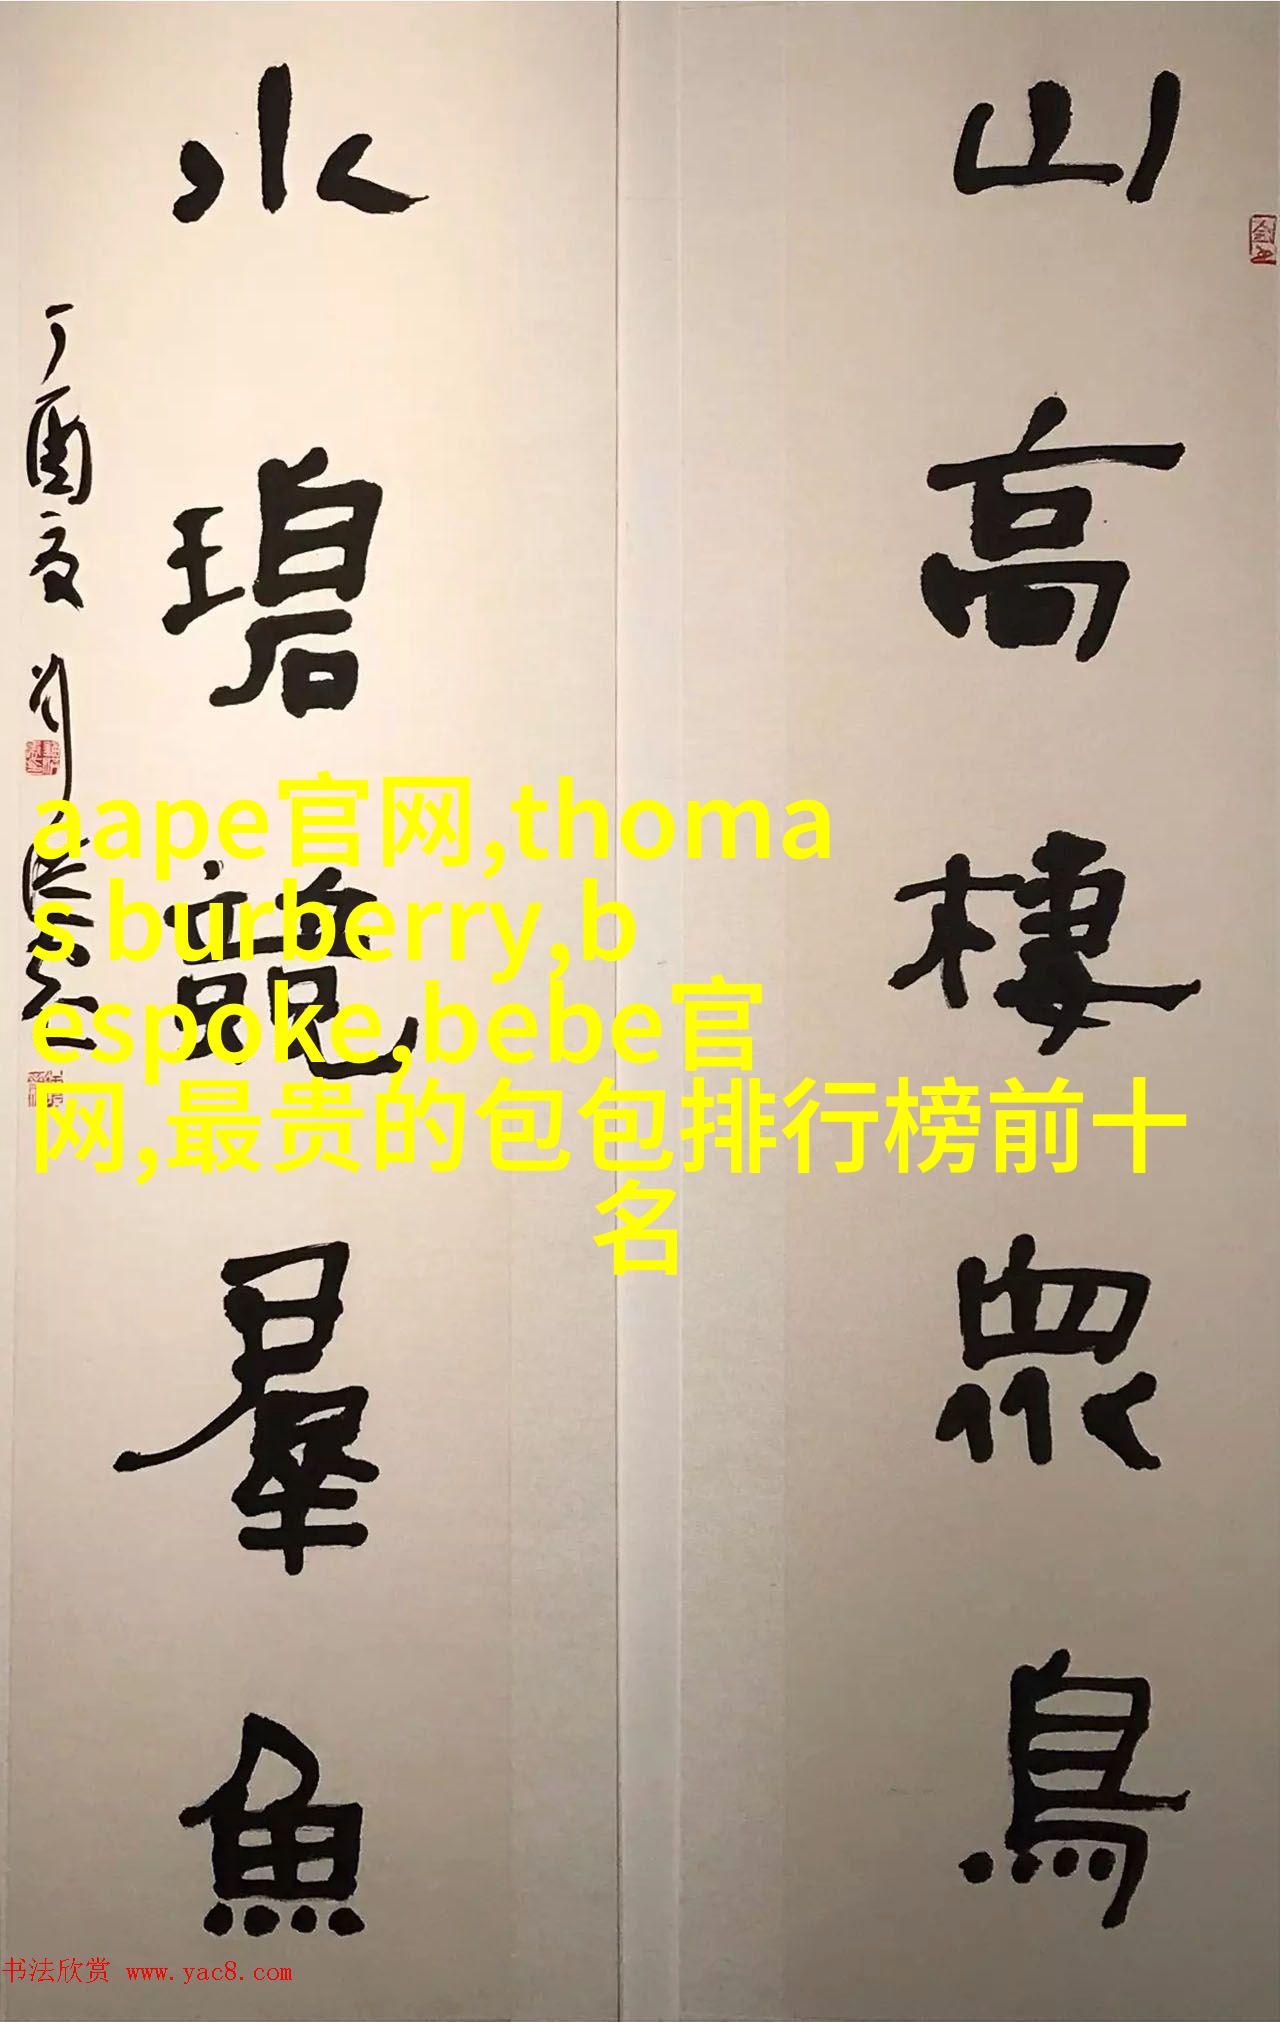 山高棲眾鳥
水碧競羣魚
丁酉夏
aape官网,thoma
s burberry,b
espoke,bebe官
网,最贵的包包排行榜前十
名
书法欣赏 www.yac8.com